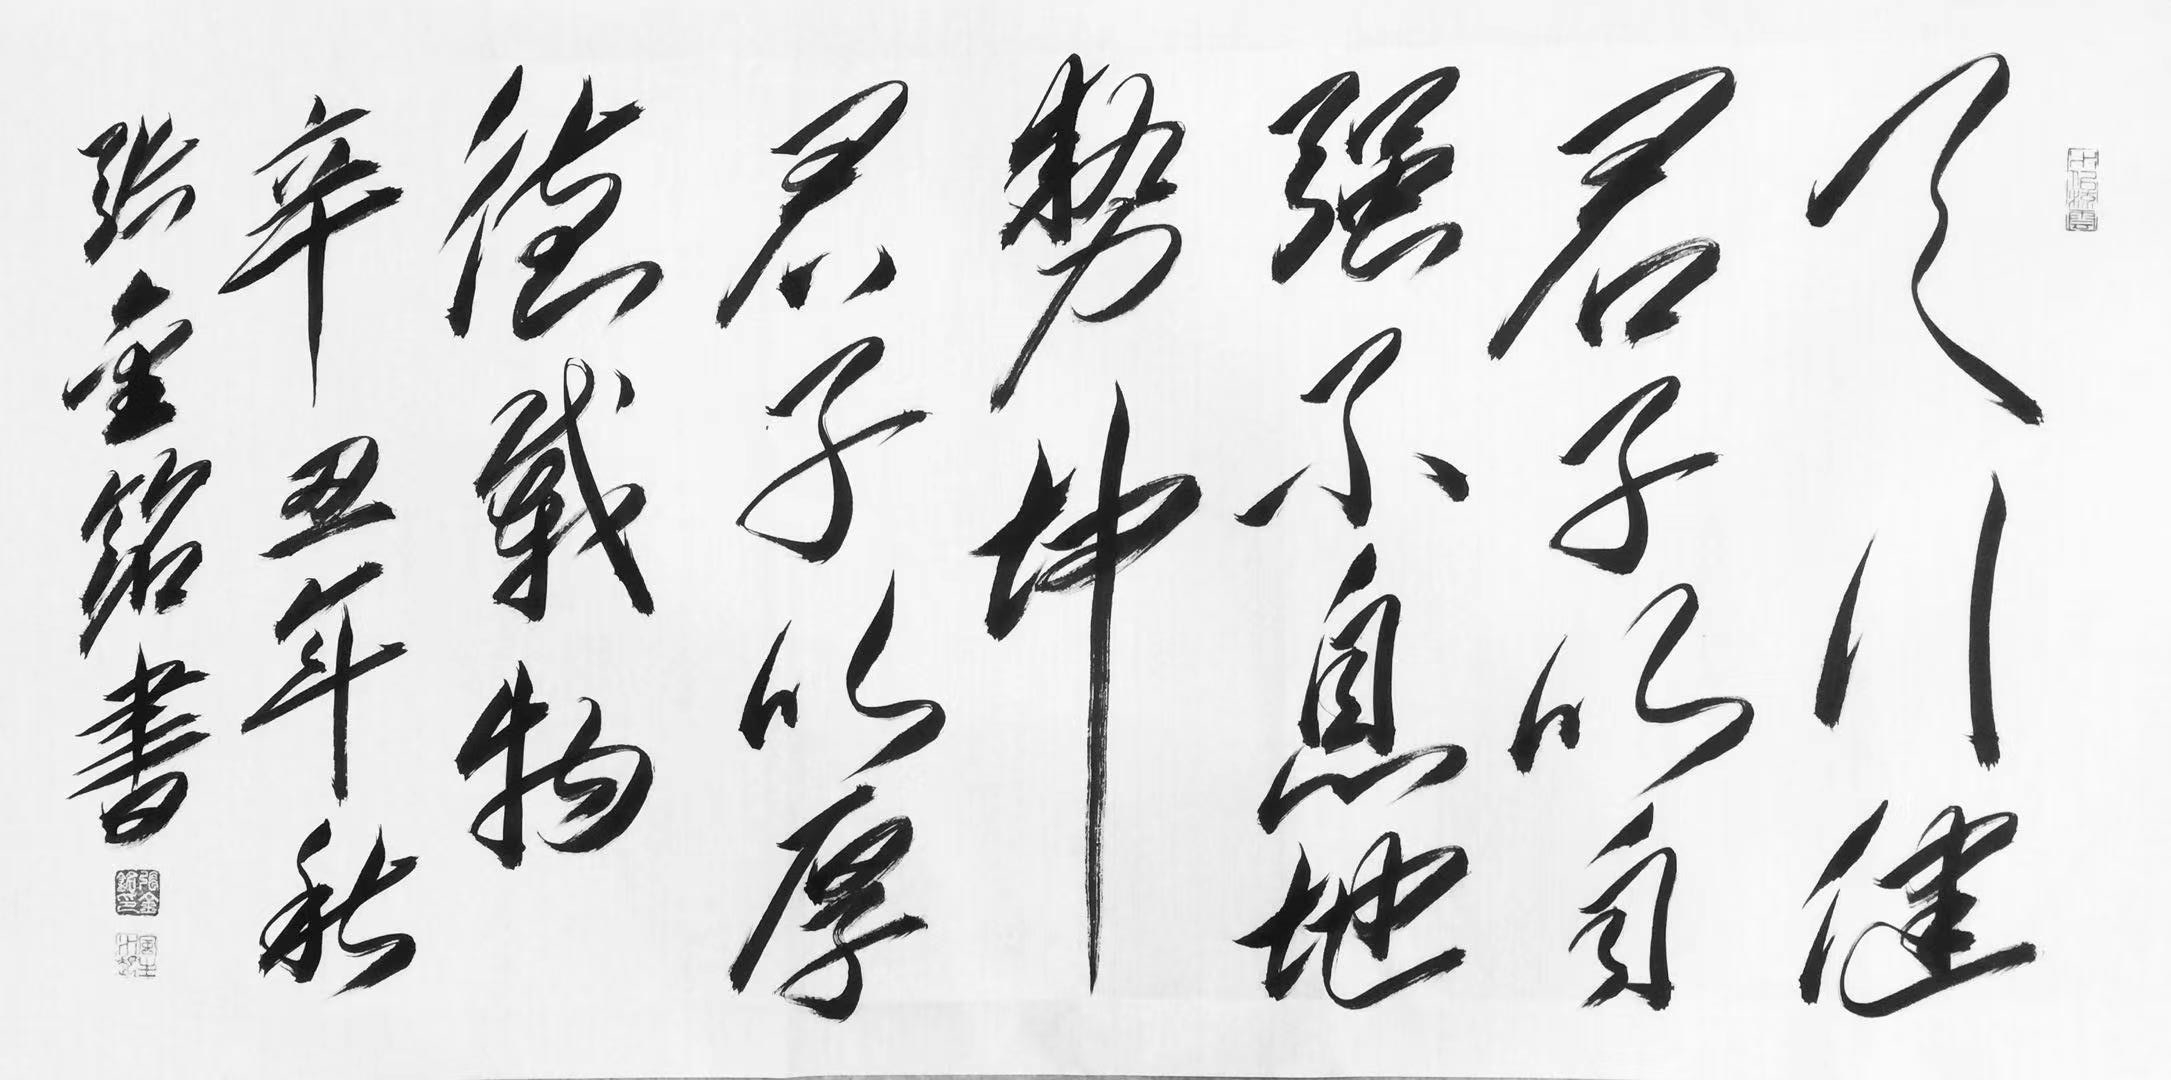 天行健
君子以自
强不息地
势坤
君子以厚
德载物
辛丑年秋
张金铭書
張金銘印